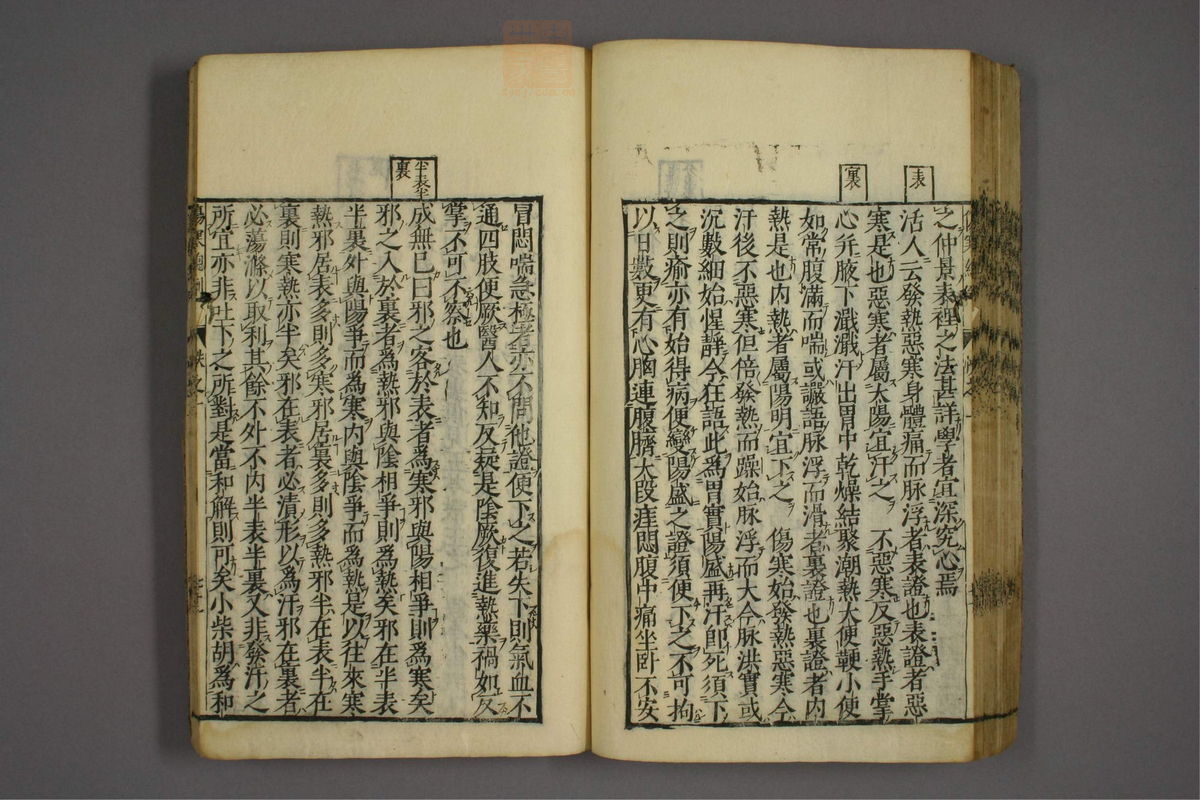 之仲景表裡之法甚詳學者宜深究心焉
表
活人云發熱惡寒身體痛而脉浮者表證也表證者惡
寒是也惡寒者屬太陽宜汗之　不惡寒反惡熱手掌
裏
心并腋下濈濈汗出胃中乾燥結聚潮熱大便鞕小便
如常腹滿而喘或譫語脉浮而滑者裏證也裏證者内
熱是也内熱者屬陽明宜下之　傷寒始發熱惡寒今
汗後不惡寒但倍發熱而躁始脉浮而大今脉洪實或
沉數細始惺靜今狂語此為胃實陽盛再汗卽死須下
之則瘉亦有始得病便變陽盛之證須便下之不可拘
以日數更有心胸連腹臍大段疰悶腹中痛坐卧不安
冒悶喘急極者亦不問他證便下之若失下則氣血不
通四肢便厥醫人不知反疑是陰厥復進熱藥禍如反
掌不可不察也
半表半
裏
成無已曰邪之客於表者爲寒邪與陽相爭則爲寒矣
邪之入於裏者爲熱邪與陰相爭則爲熱矣邪在半表
半裏外與陽爭而爲寒内與陰爭而爲熱是以往來寒
熱邪居表多則多寒邪居裏多則多熱邪半在表半在
裏則寒熱亦半矣邪在表者必漬形以爲汗邪在裏者
必蕩滌以取利其餘不外不内半表半裏又非發汗之
所宜亦非吐下之所對是當和解則可矣小柴胡爲和